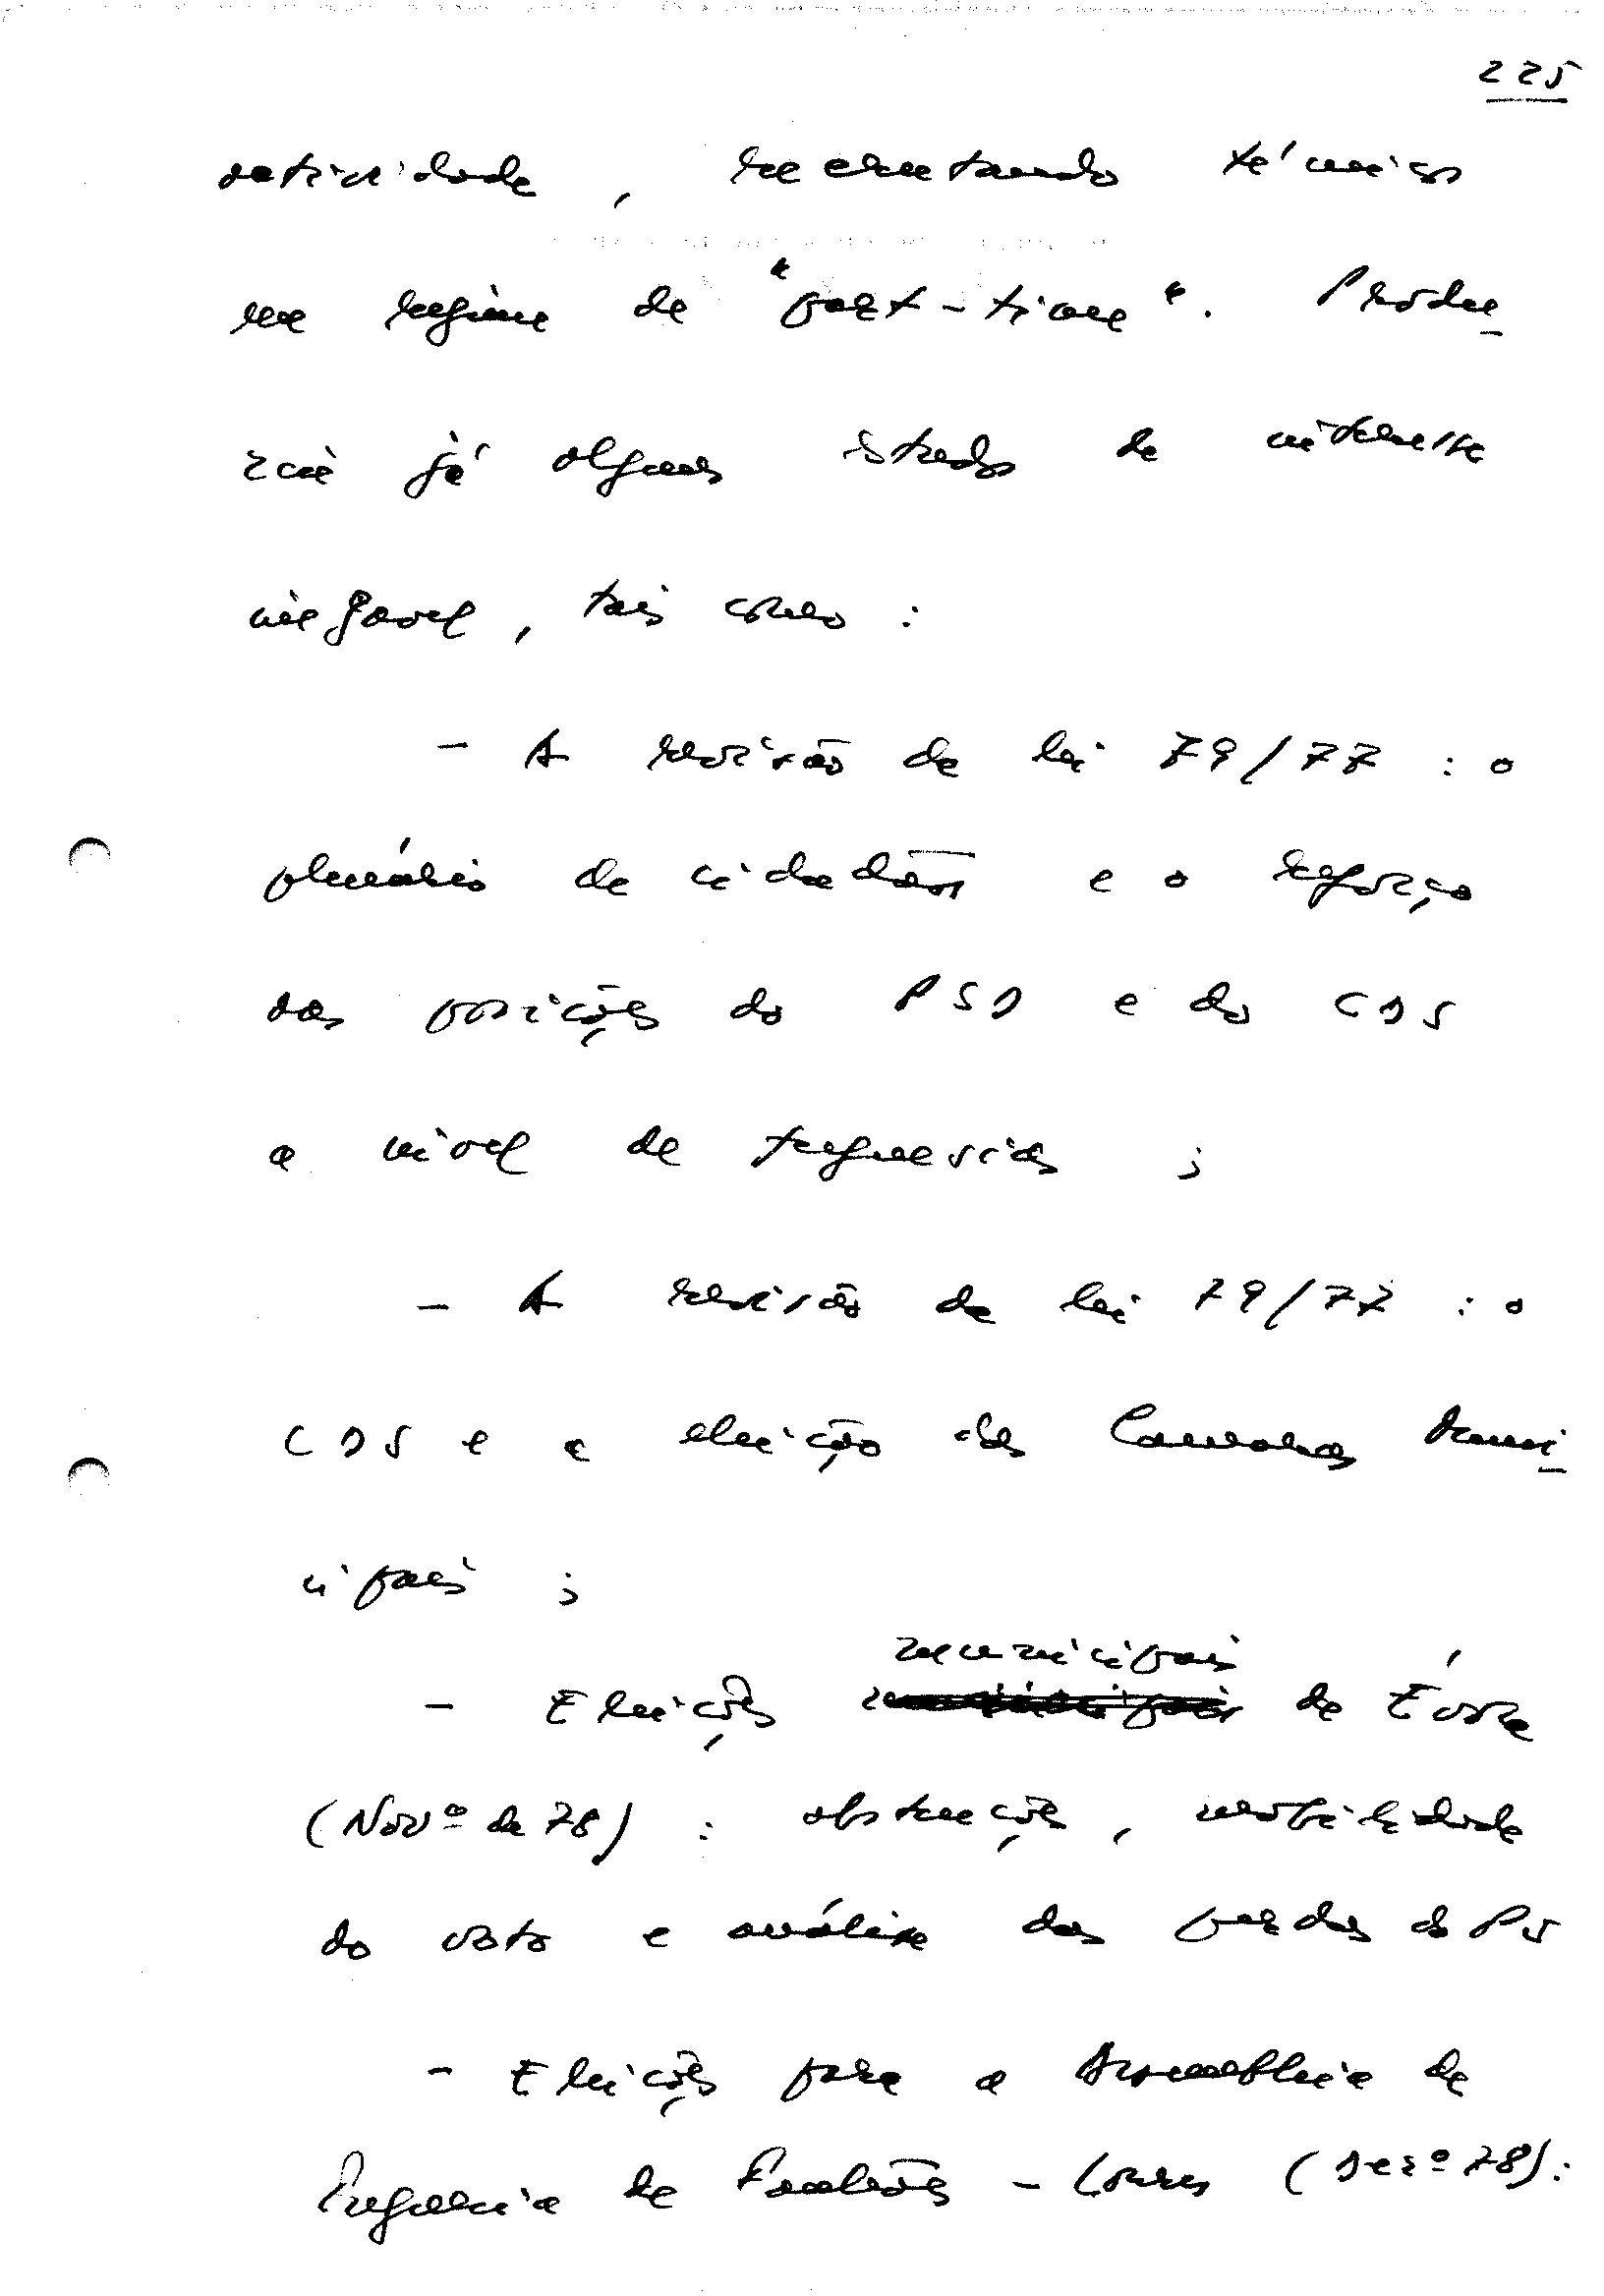 225
actividade, recrutando técnicos
em regime de "part-time". Produ
ziu já alguns estudos de interesse
inegável, tais como :
- A revisão da lei 79/77 : o
plenário de cidadãos e o reforço
das posições do PSD e do CDS
a nível de freguesias ;
- A revisão da lei 79/77 : o
CDS e a eleição das Camaras Muni
cipais ;
municipais
- Eleições de Évora
(Novº de 78) : abstenções, mobilidade
do voto e análise das perdas do PS
- Eleições para a Assembleia de
Freguesia de Famões - Loures (Dezº 78) :